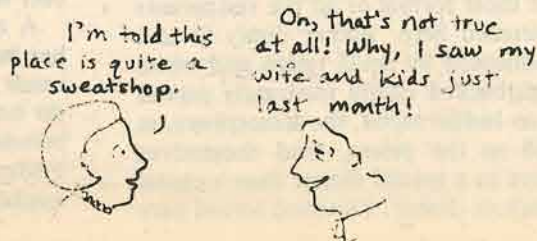 I'm told this
place is quite a
sweatshop.
Oh, that's not true
at all! Why, I saw my
wife and kids just
last month!